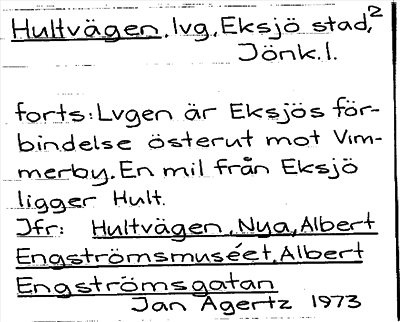 Hultvägen, lvg, Eksjö stad, 2
Jönk.l.
forts: Lvgen är Eksjös för-
bindelse österut mot Vim-
merby. En mil från Eksjö
ligger Hult.
Jfr: Hultvägen, Nya, Albert
Engströmsmuséet, Albert
Engströmsgatan
Jan Agertz 1973